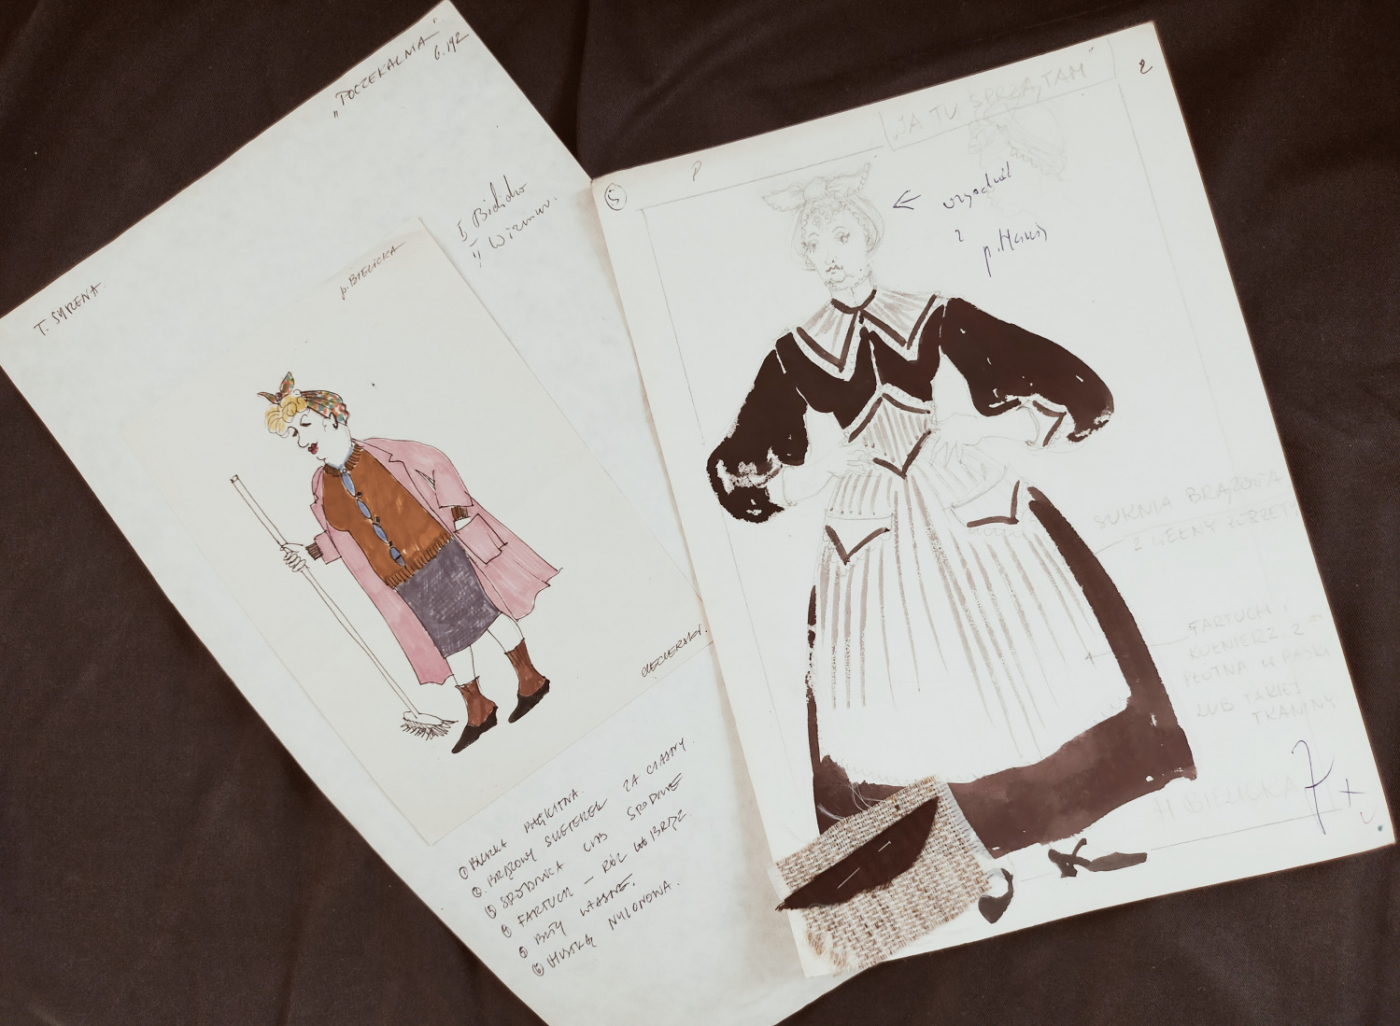 „POCZEKALNIA”
G. 142
T. SYRENA
p. BIELICKA
① BLUZKA BŁĘKITNA.
② BRĄZOWY SWETEREK ZA CIASNY.
③ SPÓDNICA LUB SPODNIE
④ FARTUCH – RÓŻ LUB BRĄZ.
⑤ BUTY WŁASNE.
⑥ CHUSTKA NYLONOWA.
„JA TU SPRZĄTAM”
2
⑤
P
←
p. Hanią
SUKNIA BRĄZOWA
Z WEŁNY
FARTUCH I
KOŁNIERZ Z
PŁÓTNA W PASKI
LUB TAKIEJ
TKANINY
H. BIELICKA